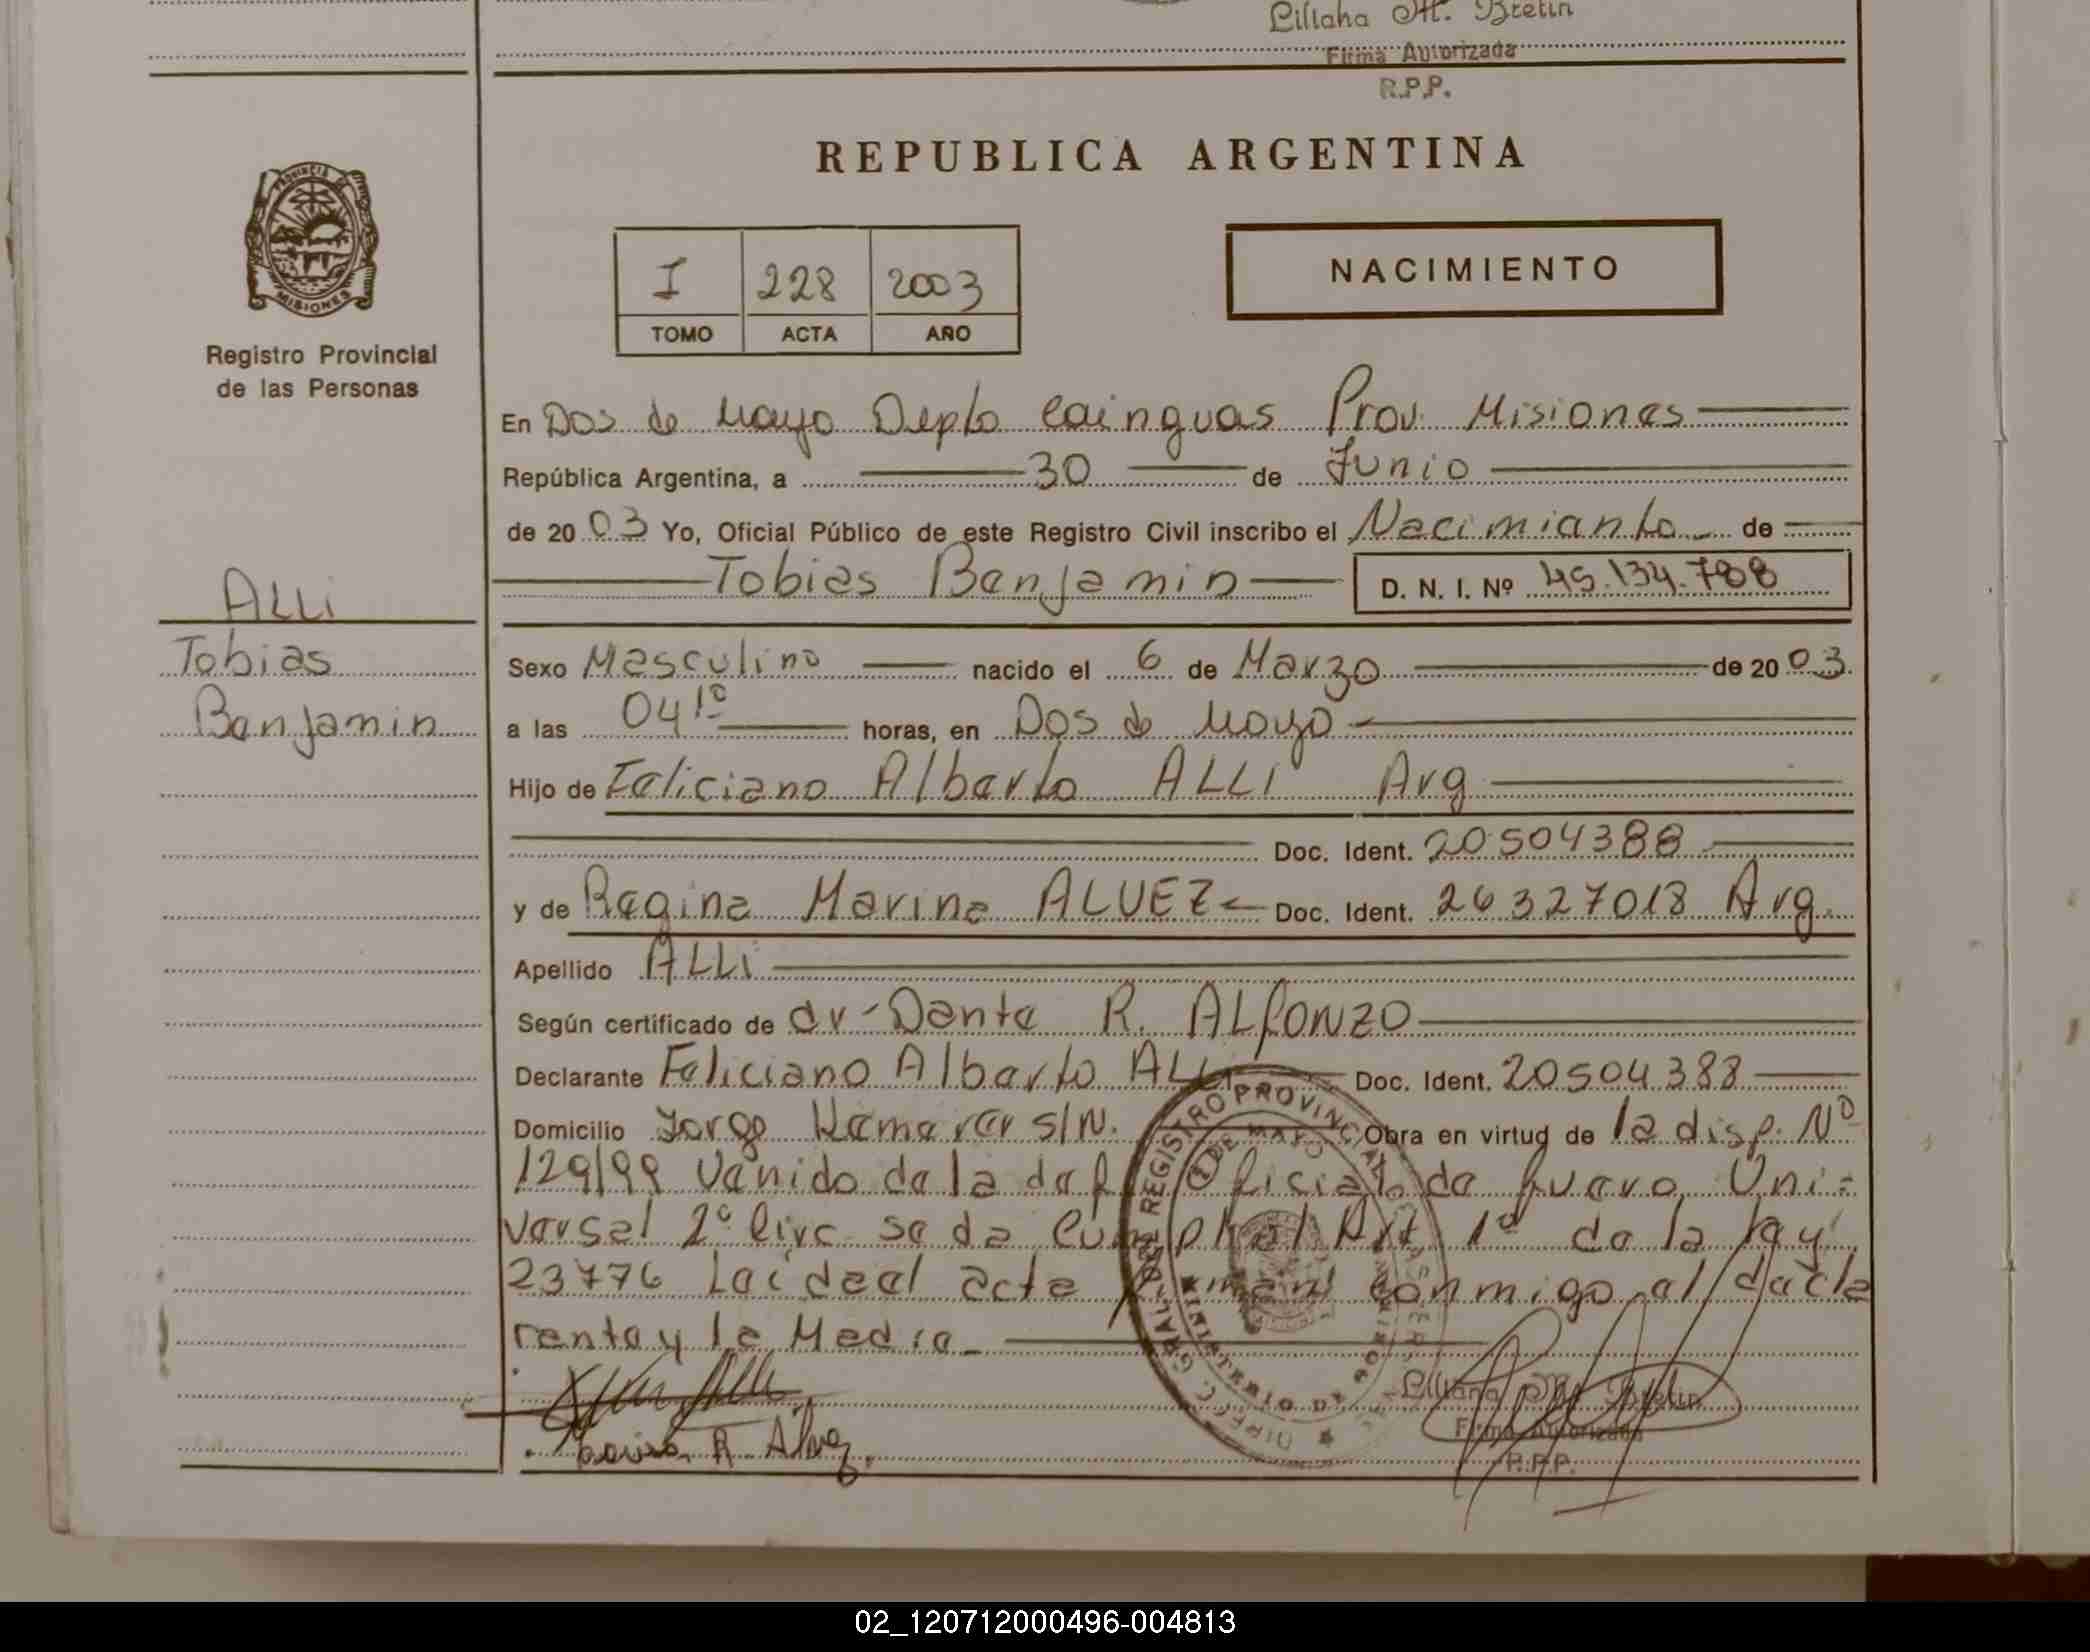 Liliana M. Bretin
Firma Autorizada
R.P.P.
REPUBLICA ARGENTINA
PROVINCIA DE
MISIONES
Registro Provincial
de las Personas
I 228 2003
TOMO ACTA AÑO
NACIMIENTO
En Dos de Mayo Depto Cainguas Prov. Misiones
República Argentina, a 30 de Junio
de 2003 Yo, Oficial Público de este Registro Civil inscribo el Nacimiento de
Tobias Benjamin D. N. I. Nº 45.134.788
ALLI
Tobias
Benjamin
Sexo Masculino nacido el 6 de Marzo de 2003.
a las 04 10 horas, en Dos de Mayo
Hijo de Feliciano Alberto ALLI Arg
Doc. Ident. 20504388
y de Regina Marina ALVEZ Doc. Ident. 26327018 Arg.
Apellido ALLI
Según certificado de dr Dante R. ALFONZO
Declarante Feliciano Alberto ALLI Doc. Ident. 20504388
Domicilio Jorge s/N. Obra en virtud de la disp. Nº
129/99 Venido de la def. Oficial de fuero Uni-
versal 2º Circ se da Cumpl al Art 1º de la ley
23776 Leida el acta firman conmigo el decla
rente y la Madre
Liliana M. Bretin
Firma Autorizada
R.P.P.
02_120712000496-004813